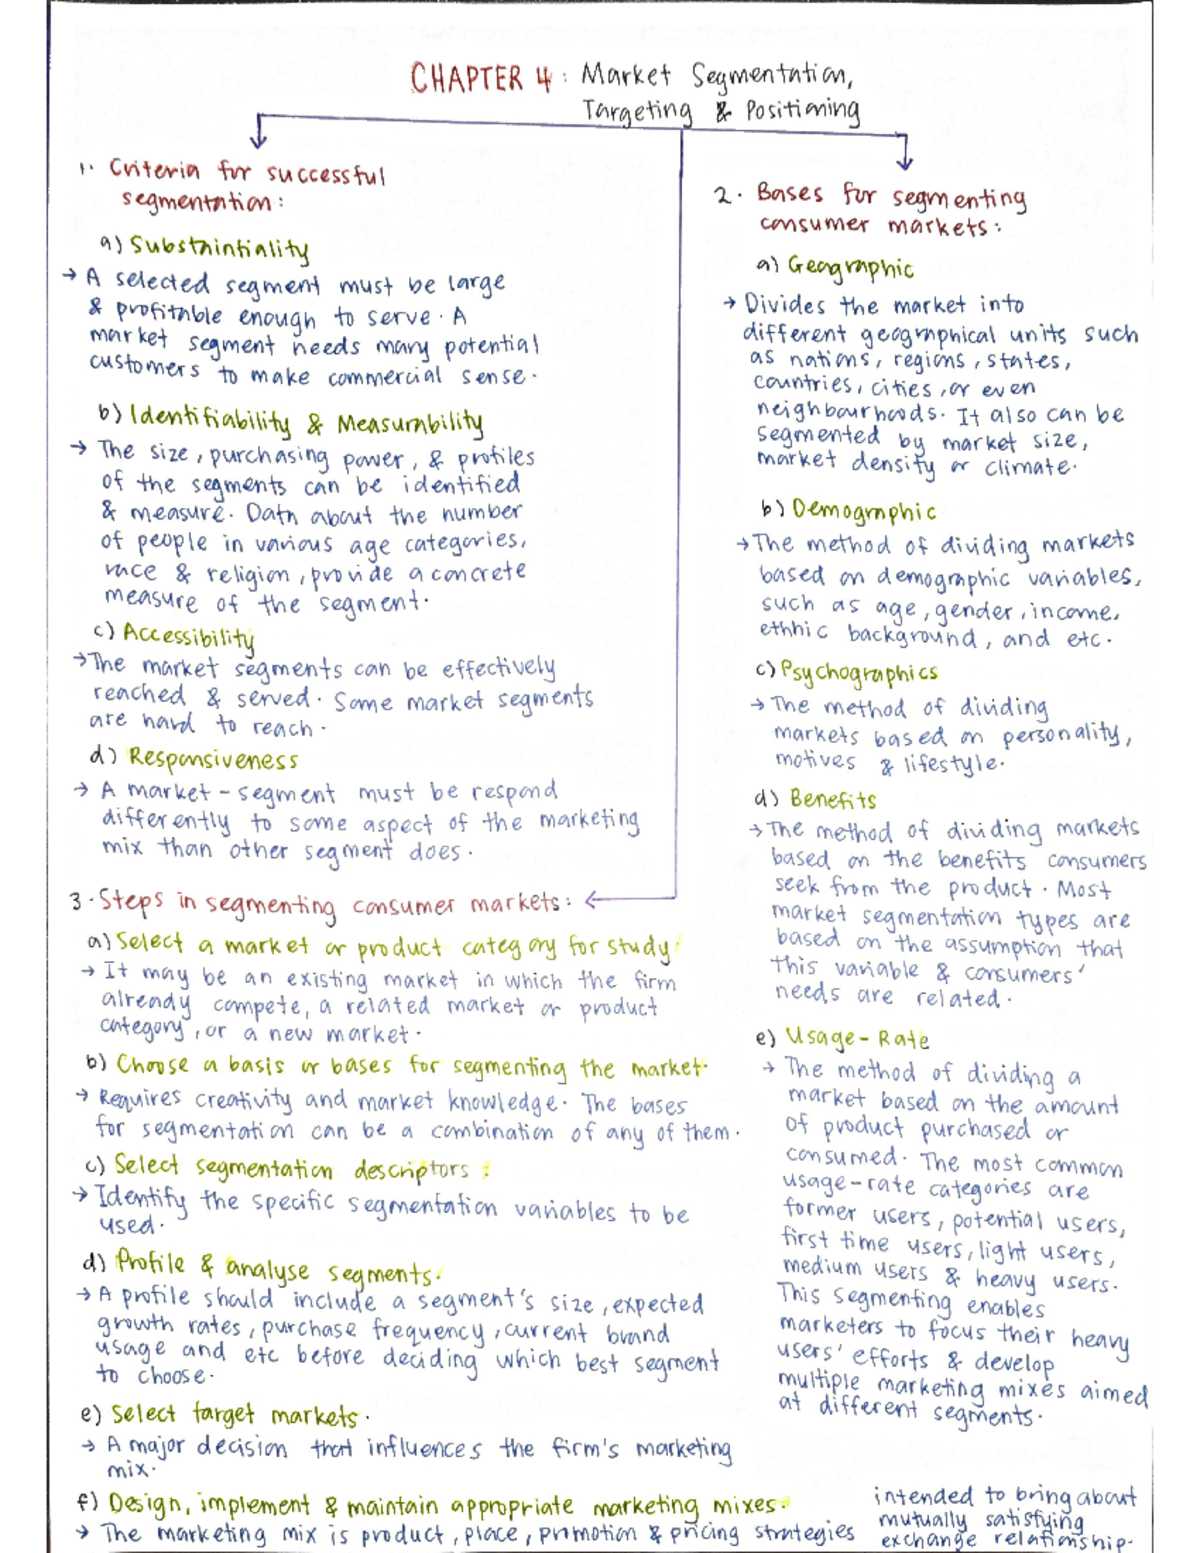 CHAPTER 4 : Market Segmentation,
Targeting & Positioning
1. Criteria for successful
segmentation:
a) Substaintiality
→ A selected segment must be large
& profitable enough to serve. A
market segment needs many potential
customers to make commercial sense.
b) Identifiability & Measurability
→ The size, purchasing power, & profiles
of the segments can be identified
& measure. Data about the number
of people in various age categories,
race & religion, provide a concrete
measure of the segment.
c) Accessibility
→ The market segments can be effectively
reached & served. Some market segments
are hard to reach.
d) Responsiveness
→ A market-segment must be respond
differently to some aspect of the marketing
mix than other segment does.
2. Bases for segmenting
consumer markets:
a) Geographic
→ Divides the market into
different geographical units such
as nations, regions, states,
countries, cities, or even
neighbourhoods. It also can be
segmented by market size,
market density or climate.
b) Demographic
→ The method of dividing markets
based on demographic variables,
such as age, gender, income,
ethnic background, and etc.
c) Psychographics
→ The method of dividing
markets based on personality,
motives & lifestyle.
d) Benefits
→ The method of dividing markets
based on the benefits consumers
seek from the product. Most
market segmentation types are
based on the assumption that
this variable & consumers'
needs are related.
e) Usage-Rate
→ The method of dividing a
market based on the amount
of product purchased or
consumed. The most common
usage-rate categories are
former users, potential users,
first time users, light users,
medium users & heavy users.
This segmenting enables
marketers to focus their heavy
users' efforts & develop
multiple marketing mixes aimed
at different segments.
3. Steps in segmenting consumer markets:
a) Select a market or product category for study.
→ It may be an existing market in which the firm
already compete, a related market or product
category, or a new market.
b) Choose a basis or bases for segmenting the market.
→ Requires creativity and market knowledge. The bases
for segmentation can be a combination of any of them.
c) Select segmentation descriptors :
→ Identify the specific segmentation variables to be
used.
d) Profile & analyse segments.
→ A profile should include a segment's size, expected
growth rates, purchase frequency, current brand
usage and etc before deciding which best segment
to choose.
e) Select target markets.
→ A major decision that influences the firm's marketing
mix.
f) Design, implement & maintain appropriate marketing mixes.
→ The marketing mix is product, place, promotion & pricing strategies
intended to bring about
mutually satisfying
exchange relationship.